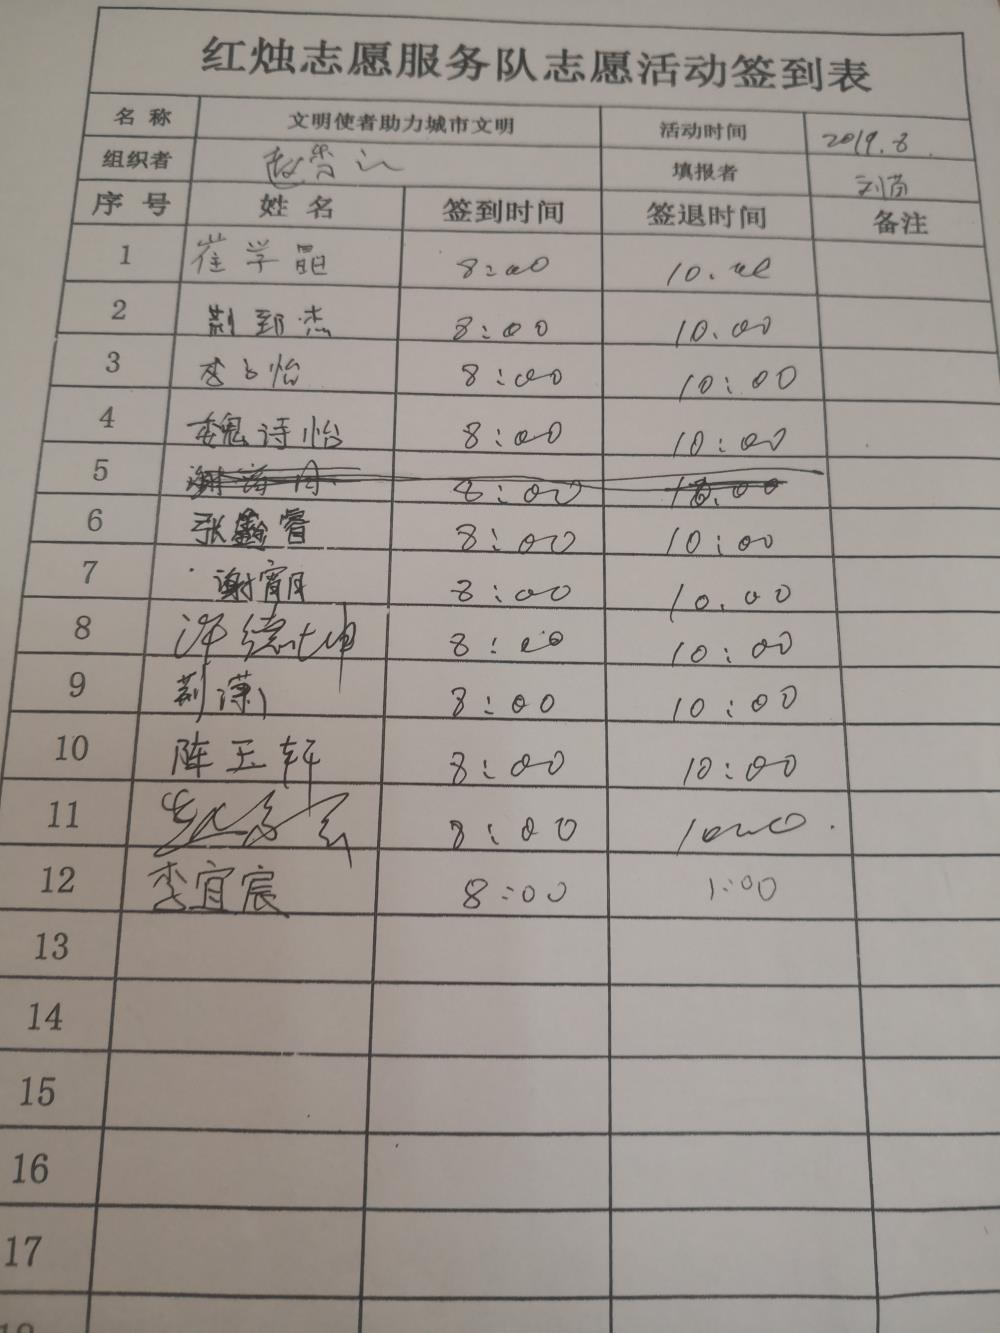 红烛志愿服务队志愿活动签到表
名称 文明使者助力城市文明 活动时间 2019.8.
组织者 填报者 刘茵
序号 姓名 签到时间 签退时间 备注
1 崔学晶 8:00 10.00
2 荆郅杰 8:00 10.00
3 李子怡 8:00 10:00
4 魏诗怡 8:00 10:00
5 8:00 10.00
6 张鑫睿 8:00 10:00
7 谢宵月 8:00 10.00
8 许德坤 8:00 10:00
9 荆潇 8:00 10:00
10 陈玉轩 8:00 10:00
11 8:00 1000.
12 李宜宸 8:00 1:00
13
14
15
16
17
18